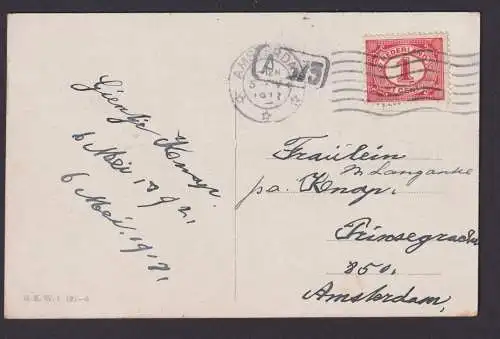 Gientje Knap.
6 Mei 1921.
6 Mei. 1921.
AMSTERDAM
A 575
NEDERLAND
1
CENT
Fraülein
M Langanke
p.a. Knap.
Prinsegracht
850.
Amsterdam,